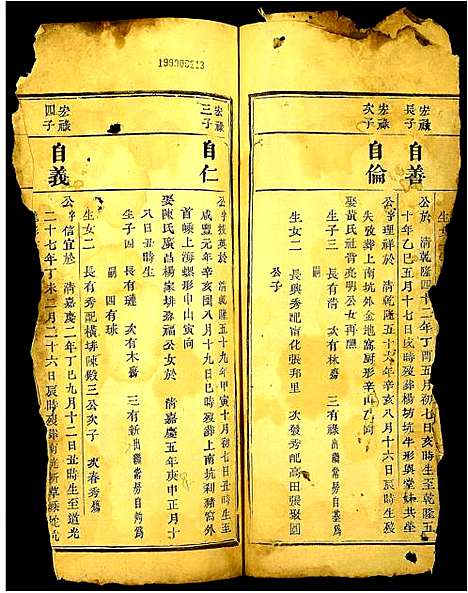 宏祿長子
自善
公於 清乾隆四十二年丁酉五月初七日亥時生至乾隆五
十年乙巳五月十七日亥時歿葬楊坊坑牛形與堂 共坐
宏祿次子
自倫
公字理祥於 清乾隆五十六年辛亥八月十六日辰時生歿
失攷葬上南坑外金地窩厨形辛山乙向
娶黃氏社背亮明公女再醮
生子三 長有 次有林 三有祿出繼常房自 爲
嗣
生女二 長興秀配 化張邦里 次發秀配高田張聚圓
公子
199000213
宏祿三子
自仁
公字 英於 清乾隆五十九年甲寅十月初七日丑時生至
咸豐元年辛亥閏八月十九日巳時歿葬上南坑利豬窩外
首嵊上海螺形申山寅向
娶陳氏廣昌楊家排 福公女於 清嘉慶五年庚申正月十
八日丑時生
生子四 長有璉 次有本 三有新出繼常房自 爲
嗣 四有球
生女二 長有秀配橫排陳毅三公次子 次春秀
宏祿四子
自義
公字信宜於 清嘉慶二年丁巳九月十二日丑時生至道光
二十七年丁未二月二十六日辰時歿葬南坑